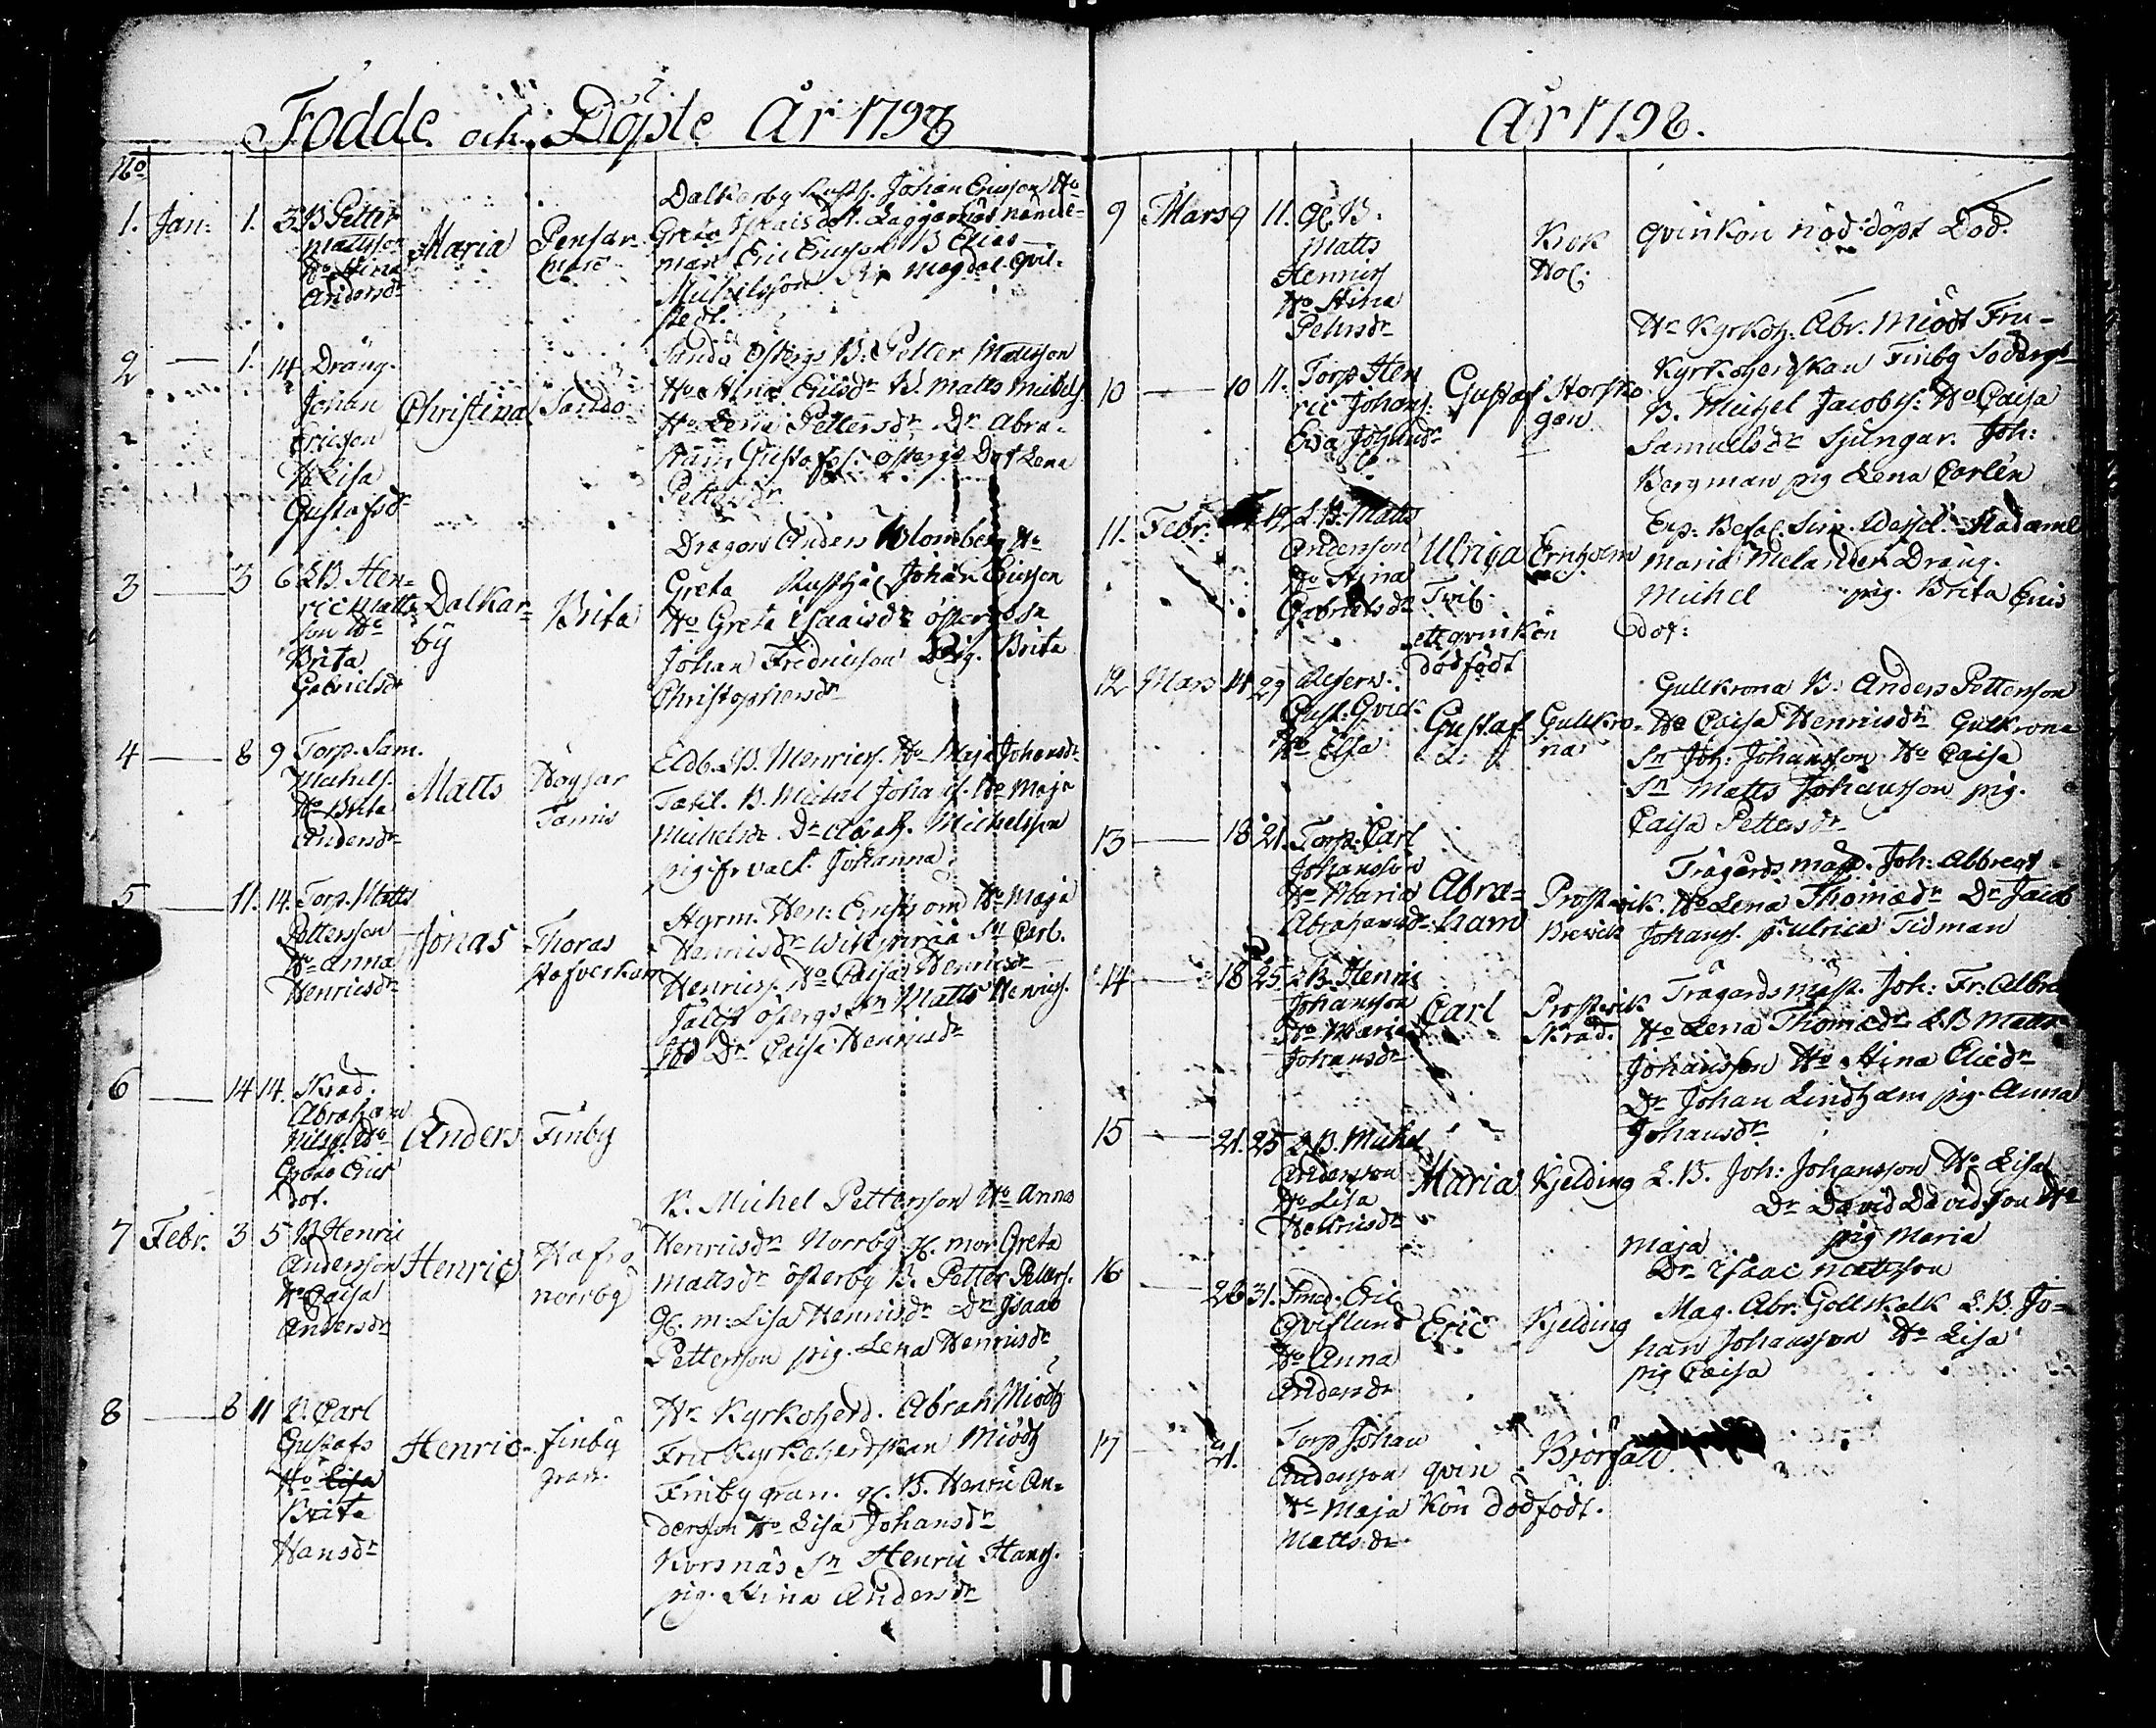 Födde och Döpte År 1798
No
1. Jan: 1. 3 B Petter Mattsson Ho Stina Andersdr Maria Pensar
Dalkarby Rusth. Johan Ericsson Ho
Greta Isaaisdot.
man Eric Ericsson B Elias
Michelsson Magdal. Qvi-
stedt.
2 — 1. 14 Dräng.
Johan
Ericsson
H Lisa
Gustafsdr
Christina Sandö
Sandö österg. B. Petter Mattsson
Ho Stina Ericsdr B. Matts Michels.
Ho Lena Pettersdr Dr Abra-
ham Gustafss. österg. Dot Lena
Pettersdr
3 — 3 6 L.B. Hen-
ric Matts
son Ho
Brita
Gabrielsdr
Dalkar-
by
Brita
Dragon Anders Blomberg Ho
Greta Rusthål Johan Ericsson
Ho Greta Isaaisdr österg.
Johan Fredricsson Pig. Brita
Christophersdr
4 — 8 9 Torp. Sam.
Michels.
Ho Brita
Andersdr
Matts Högsar
Tomis
B. Henricss. Ho Maja Johansdr
B. Michel Johans. Ho Maja
Michelsdr. Dr Abrah. Michelsson
pig Johanna
5 — 11. 14. Torp. Matts
Pettersson
Ho Anna
Henricsdr
Jonas Thoras
Hen: Ho Maja
Henricsdr Sn Carl.
Henricss. Ho Caisa Henricsdr
österg. Sn Matts Henricss.
Dr Caisa Henricsdr
6 — 14 14. Skräd.
Abraham
Nilss. Ho
Greta Eric
dot.
Anders Finby
7 Febr. 3 5 B Henric
Andersson
Ho Caisa
Andersdr
Henric
norrby
B. Michel Pettersson Ho Anna
Henricsdr Norrby gl. mor Greta
Mattsdr österby B. Petter Peters.
gl. m: Lisa Henricsdr Dr Isaac
Pettersson pig. Lena Henricsdr
8 — 8 11 B. Carl
Gustafs
Ho Lisa
Brita
Hansdr
Henric Finby
gran.
Hr Kyrkoherd. Abrah Miödh
Fru Kyrkoherdskan Miödh
Finby gran. gl. B. Henric An-
dersson Ho Lisa Johansdr
Korsnäs Sn Henric Hanss.
pig. Stina Andersdr
År 1798.
9 Mars 9 11. gl. B.
Matts
Henrics
Ho Stina
Pehrsdr
Krok
Hol.
qvinkön nöd döpt Död.
10 — 10 11. Torp Hen
ric Johans.
Eva Johansdr
Gustaf Storsko
gen
Hr Kyrkoh. Abr. Miödt Fru
Kyrkoherdskan Finby
B. Michel Jacobss. Ho Caisa
Samuelsdr Ljungar. Joh:
Bergman pig Lena Carlén
11. Febr. 17 L.B. Matts
Andersson
Ho Stina
Gabrielsdr
Ulrica
Tvil.
ett qvinkön
dödfödt
Ernholm
Exp. Befal. Sim. Madamell
Maria Melander Dräng.
Michel pig. Brita Erics
dot:
12 Mars 14 29 Reserv.
Gust: Qvick
Ho Elsa
Gustaf Gullkro-
na
Gullkrona B. Anders Pettersson
Ho Caisa Henricsdr Gulkrona
Sn Joh: Johansson Ho Caisa
Sn Matts Johansson pig.
Caisa Pettersdr
13 — 18 21. Torp. Carl
Johansson
Ho Maria
Abrahamsdr
Abra-
ham
Prostvik
Brewik
Trägårds mäst. Joh: Albregt
Ho Lena Thomædr Dr Jacob
Johans. p. Ulrica Tidman
14 — 18 25 L.B. Henric
Johansson
Ho Maria
Johansdr
Carl Prostvik
Skräd.
Trägårdsmäst. Joh: Fr: Albre
Ho Lena Thomædr L.B Matts
Johansson Ho Stina Eliedr
Dr Johan Lindholm pig. Anna
Johansdr
15 — 21. 25 L.B. Michel
Andersson
Ho Lisa
Henricsdr
Maria Kjelding L.B. Joh: Johansson Ho Lisa
Dr David Davidson Ho
Maja pig Maria
Dr Isaac Mattsson
16 — 26 31. Smed. Eric
Qviflund
Ho Anna
Andersdr
Eric Kjelding Mag. Abr. Gottskalk L.B. Jo-
han Johansson Ho Lisa
pig Caisa
17 — 21. Torp Johan
Andersson
Ho Maja
Mattsdr
qvin
kön dödfödt.
Biörsall